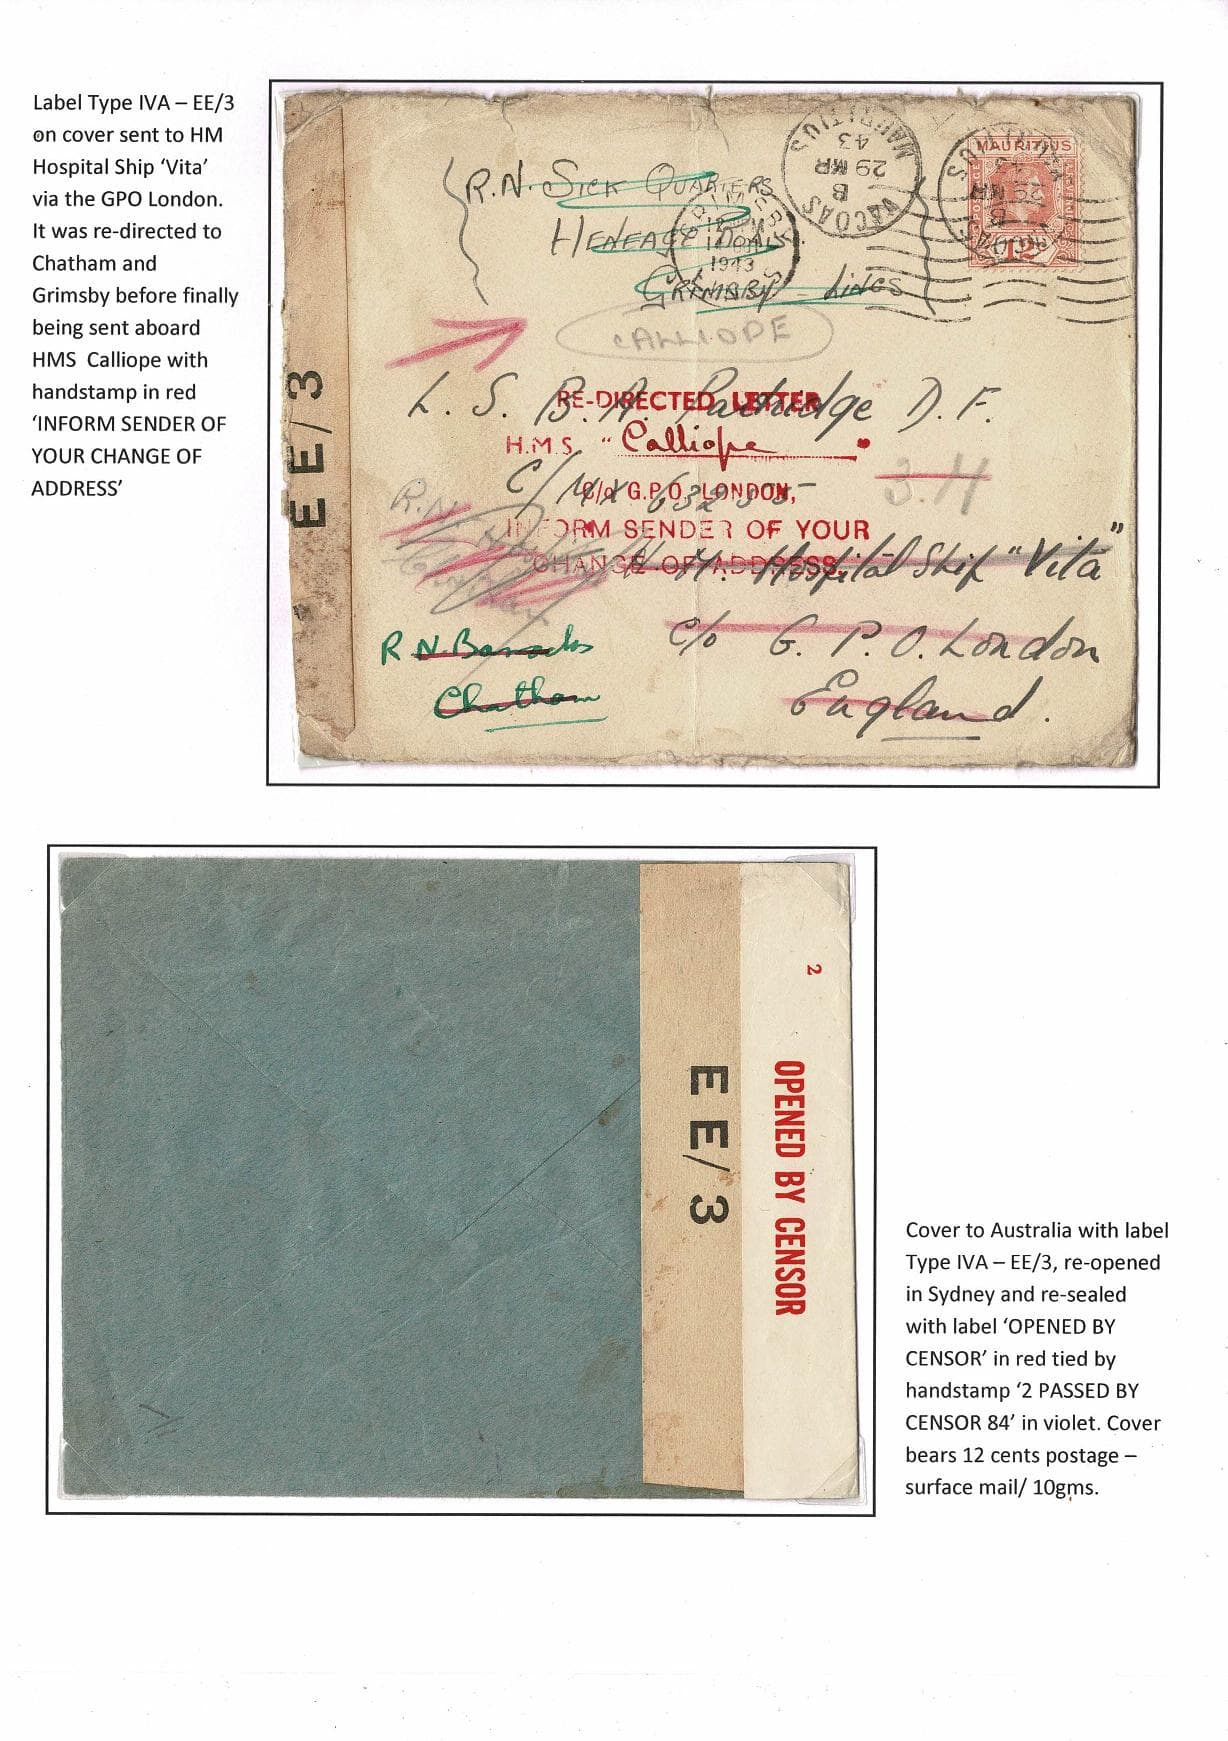 Label Type IVA – EE/3
on cover sent to HM
Hospital Ship ‘Vita’
via the GPO London.
It was re-directed to
Chatham and
Grimsby before finally
being sent aboard
HMS Calliope with
handstamp in red
‘INFORM SENDER OF
YOUR CHANGE OF
ADDRESS’
EE/3
R.N. SICK QUARTERS
HENEAGE
GRIMSBY LINCS
1943
VACOAS
B
29 MR
43
MAURITIUS
VACOAS
B
29 MR
43
MAURITIUS
MAURITIUS
12
CALLIOPE
L. S. B. A. Partridge D. F.
RE-DIRECTED LETTER
H.M.S. “Calliope
C/MX
C/o G.P.O. LONDON,
3.4
R.N.
INFORM SENDER OF YOUR
CHANGE OF ADDRESS.
H. M. Hospital Ship “Vita”
R N. Barracks
Chatham
c/o G. P. O. London
England.
2
OPENED BY CENSOR
EE/3
Cover to Australia with label
Type IVA – EE/3, re-opened
in Sydney and re-sealed
with label ‘OPENED BY
CENSOR’ in red tied by
handstamp ‘2 PASSED BY
CENSOR 84’ in violet. Cover
bears 12 cents postage –
surface mail/ 10gms.